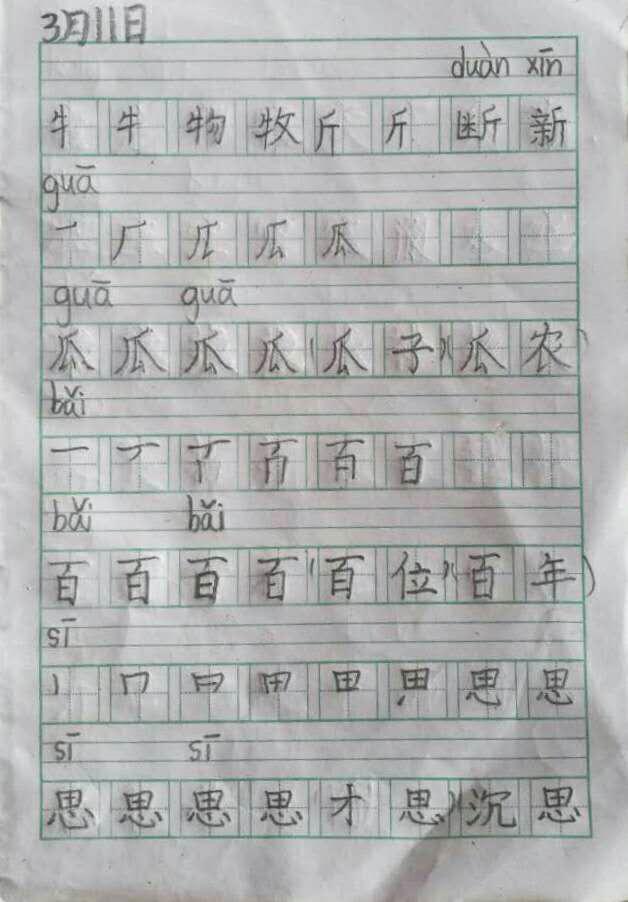 3月11日
duàn xīn
牜 牜 物 牧 斤 斤 断 新
guā
一 厂 瓜 瓜
guā guā
瓜 瓜 瓜 瓜 (瓜 子)(瓜 农)
bǎi
一 丆 百 百
bǎi bǎi
百 百 百 百 (百 位)(百 年)
sī
丨 冂 日 田 田 思 思
sī sī
思 思 思 思 才 思)(沉 思